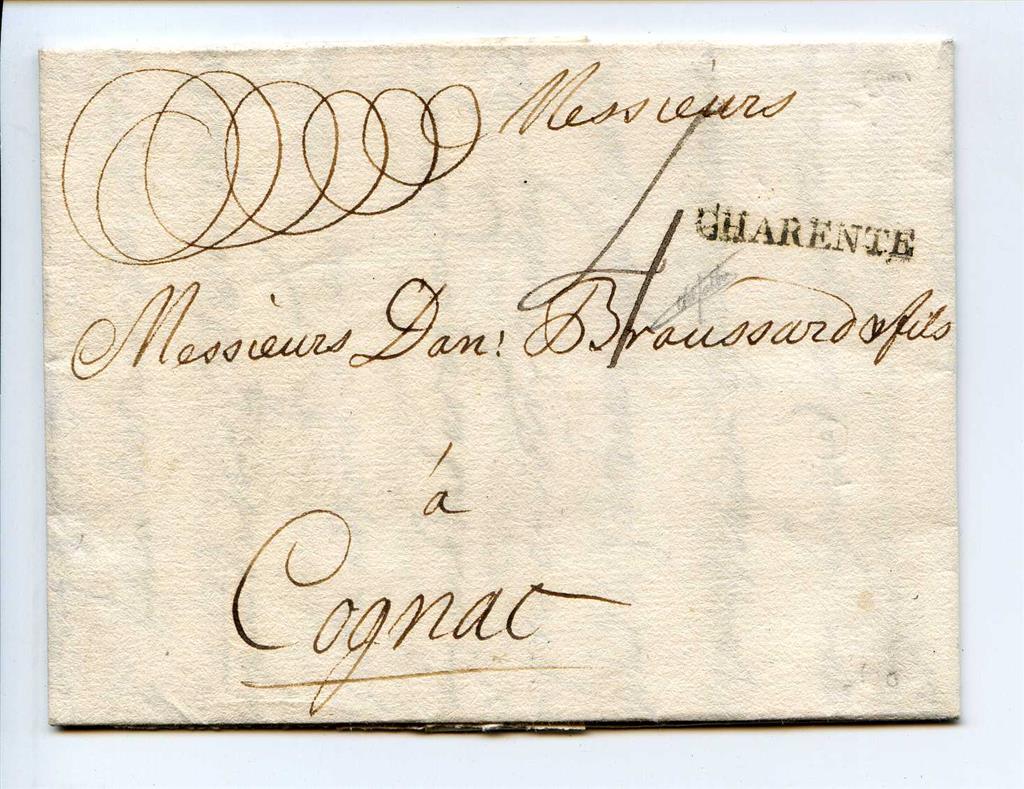 Messieurs
4
CHARENTE
Messieurs Dan! Broussard & fils
à
Cognac